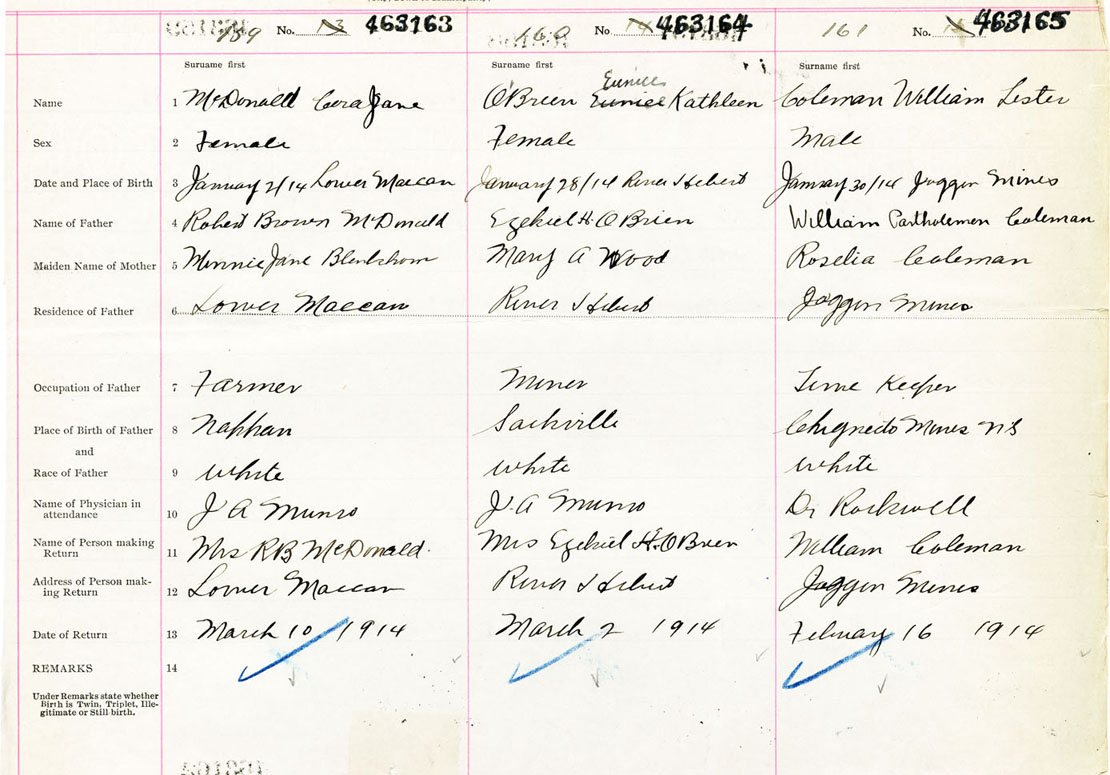 159 No. 13 463163 160 No. 14 463164 161 No. 463165
Surname first Surname first Surname first
Eunice
Name 1 McDonald Cora Jane O'Brien Eunice Kathleen Coleman William Lester
Sex 2 Female Female Male
Date and Place of Birth 3 January 2/14 Lower Maccan January 28/14 River Hebert January 30/14 Joggin Mines
Name of Father 4 Robert Brown McDonald Ezekiel H. O'Brien William Coleman
Maiden Name of Mother 5 Minnie Jane Mary A Wood Roselia Coleman
Residence of Father 6 Lower Maccan River Hebert Joggin Mines
Occupation of Father 7 Farmer Miner Time Keeper
Place of Birth of Father 8 Nappan Sackville Chignecto Mines NS
and
Race of Father 9 White White White
Name of Physician in
attendance 10 J A Munro J. A Munro Dr Rockwell
Name of Person making
Return 11 Mrs R B McDonald. Mrs Ezekiel H. O'Brien William Coleman
Address of Person mak-
ing Return 12 Lower Maccan River Hebert Joggin Mines
Date of Return 13 March 10 1914 March 2 1914 February 16 1914
REMARKS 14
Under Remarks state whether
Birth is Twin, Triplet, Ille-
gitimate or Still-birth.